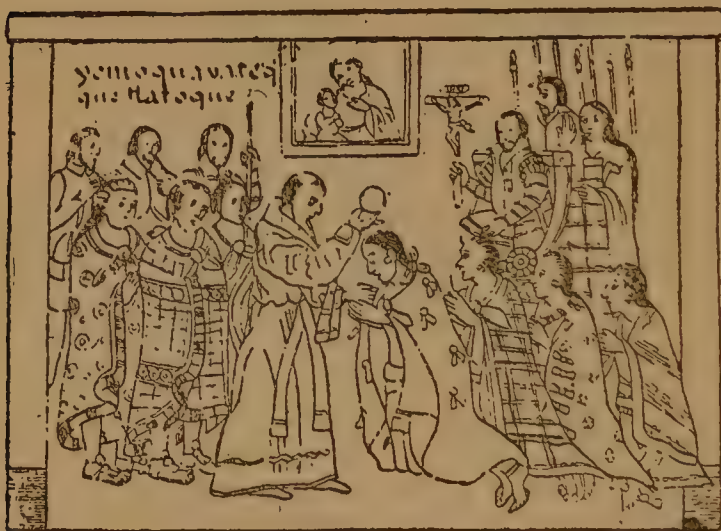 yemoquayateqͥ
que tlatoque